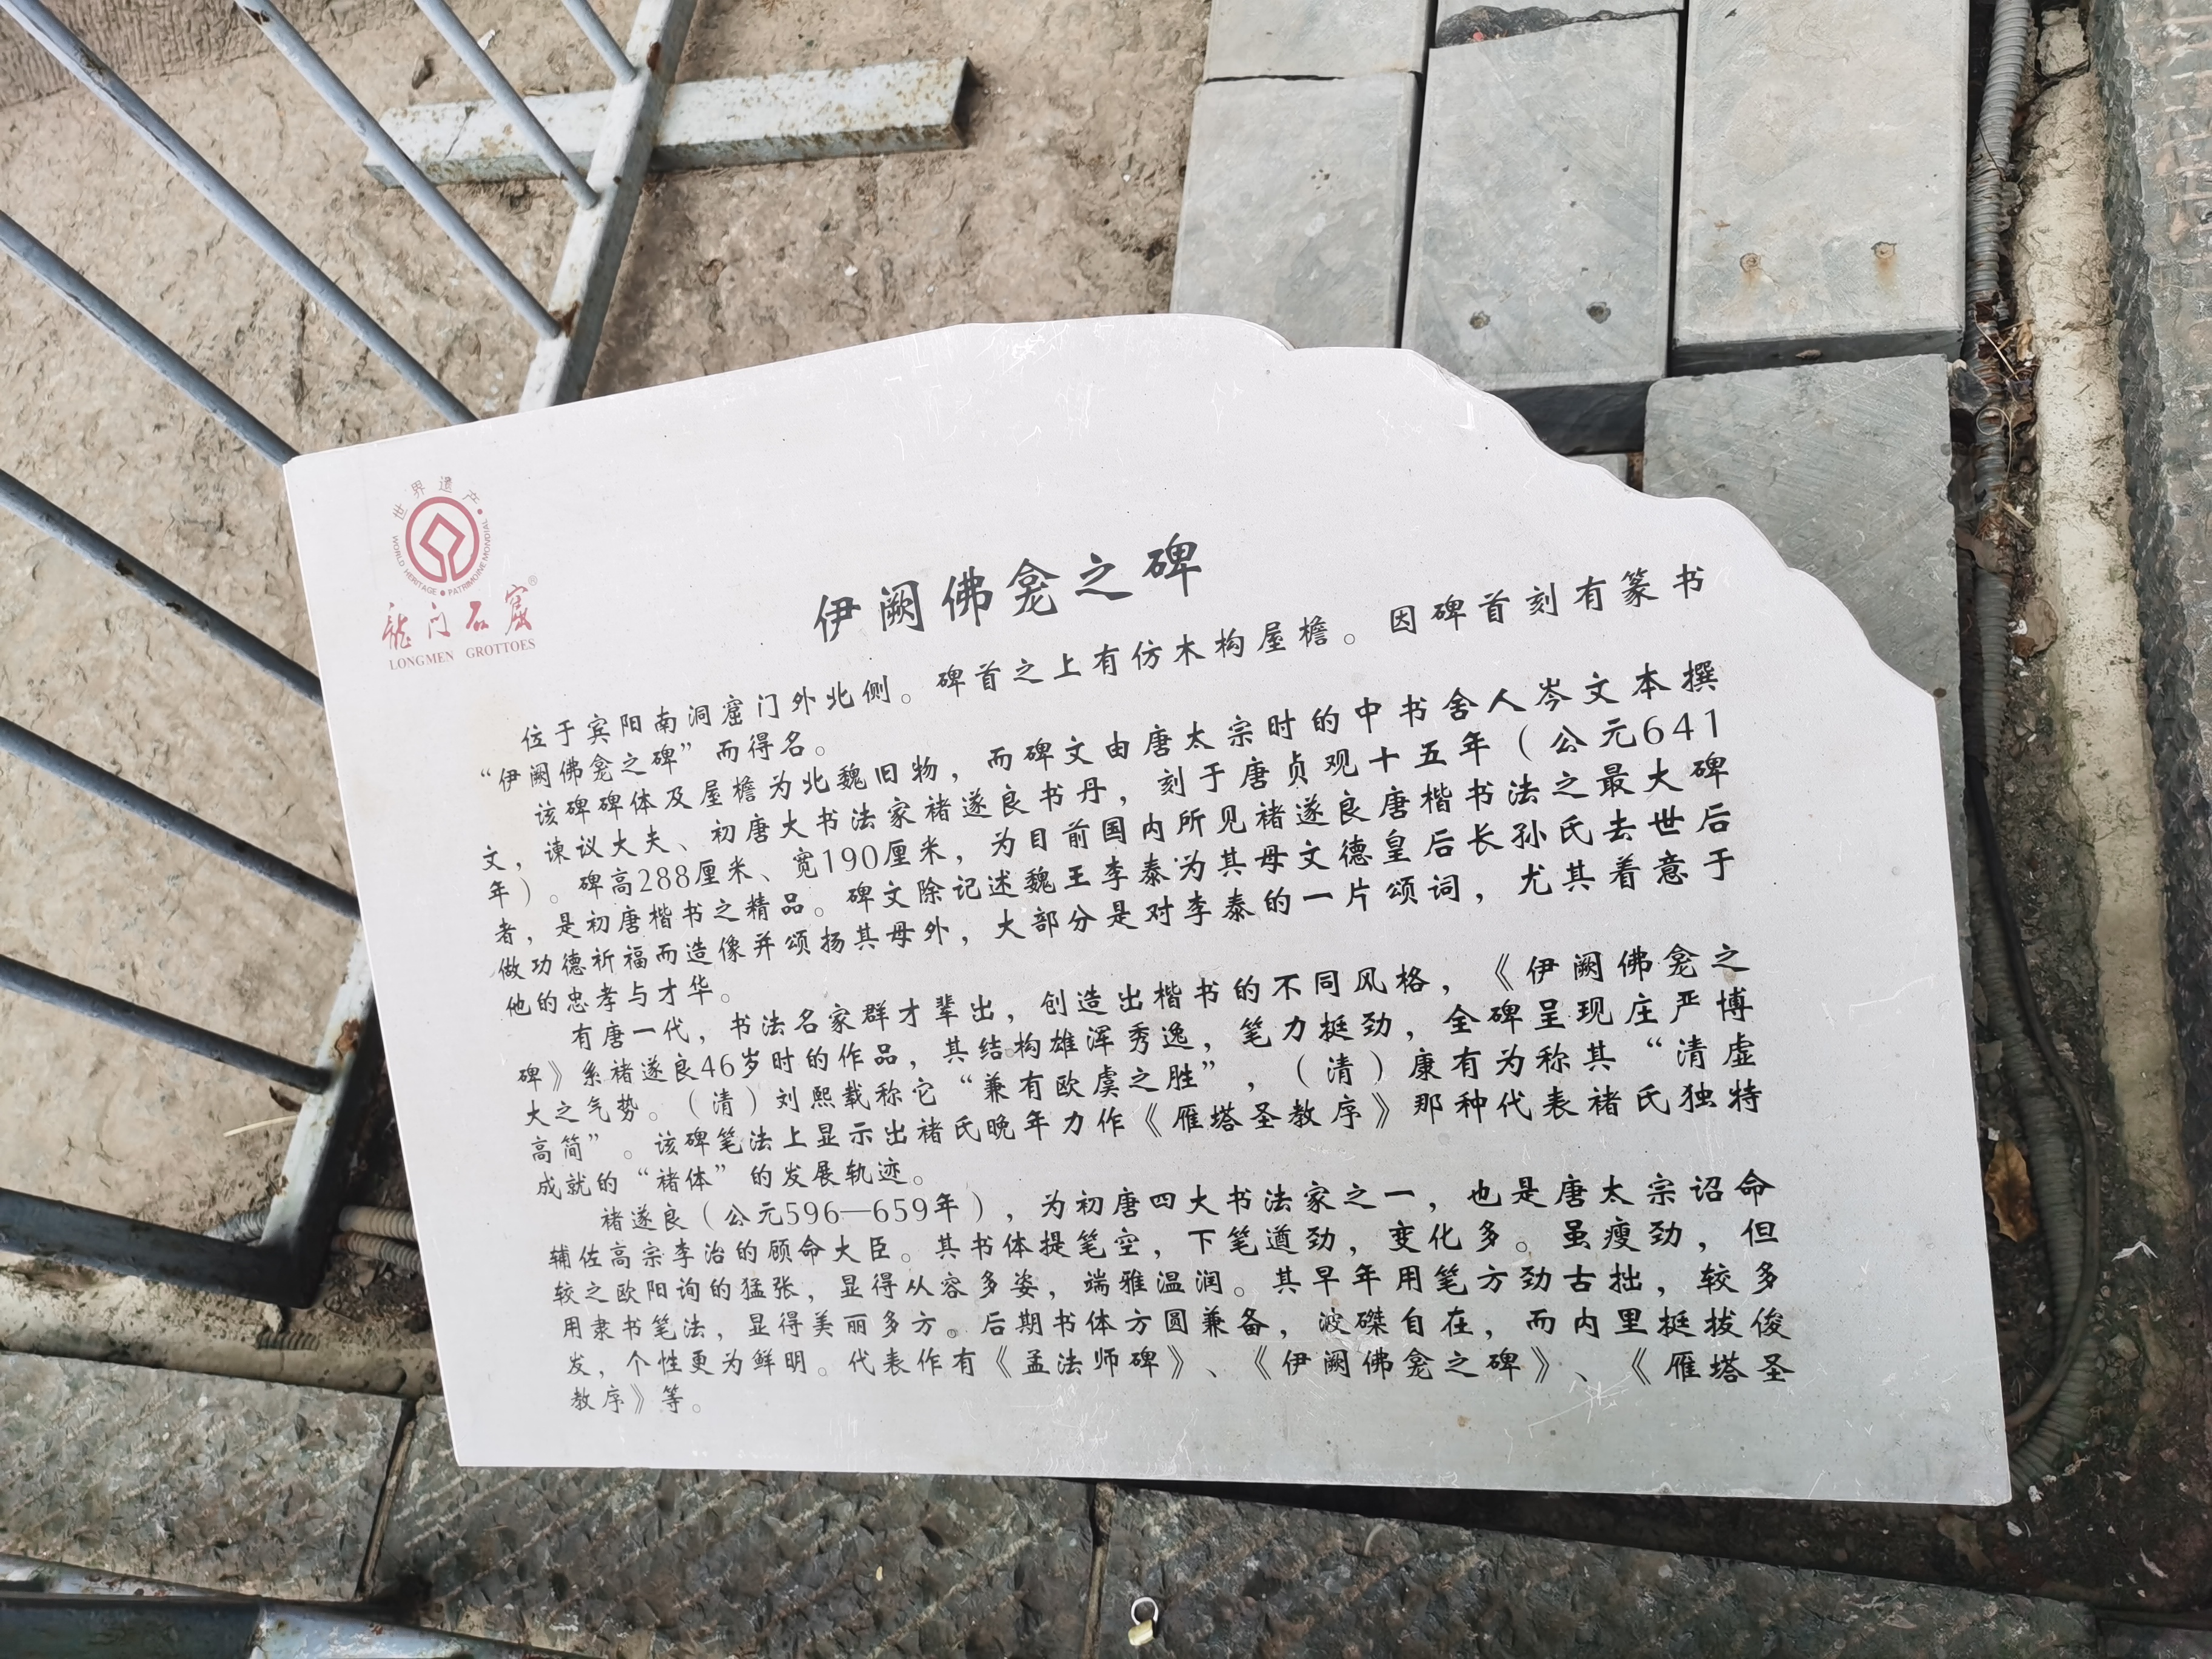 世界遗产
WORLD HERITAGE • PATRIMOINE MONDIAL
龙门石窟®
LONGMEN GROTTOES
伊阙佛龛之碑
位于宾阳南洞窟门外北侧。碑首之上有仿木构屋檐。因碑首刻有篆书
“伊阙佛龛之碑”而得名。
该碑碑体及屋檐为北魏旧物，而碑文由唐太宗时的中书舍人岑文本撰
文，谏议大夫、初唐大书法家褚遂良书丹，刻于唐贞观十五年（公元641
年）。碑高288厘米、宽190厘米，为目前国内所见褚遂良唐楷书法之最大碑
者，是初唐楷书之精品。碑文除记述魏王李泰为其母文德皇后长孙氏去世后
做功德祈福而造像并颂扬其母外，大部分是对李泰的一片颂词，尤其着意于
他的忠孝与才华。
有唐一代，书法名家群才辈出，创造出楷书的不同风格，《伊阙佛龛之
碑》系褚遂良46岁时的作品，其结构雄浑秀逸，笔力挺劲，全碑呈现庄严博
大之气势。（清）刘熙载称它“兼有欧虞之胜”，（清）康有为称其“清虚
高简”。该碑笔法上显示出褚氏晚年力作《雁塔圣教序》那种代表褚氏独特
成就的“褚体”的发展轨迹。
褚遂良（公元596—659年），为初唐四大书法家之一，也是唐太宗诏命
辅佐高宗李治的顾命大臣。其书体提笔空，下笔遒劲，变化多。虽瘦劲，但
较之欧阳询的猛张，显得从容多姿，端雅温润。其早年用笔方劲古拙，较多
用隶书笔法，显得美丽多方。后期书体方圆兼备，波磔自在，而内里挺拔俊
发，个性更为鲜明。代表作有《孟法师碑》、《伊阙佛龛之碑》、《雁塔圣
教序》等。